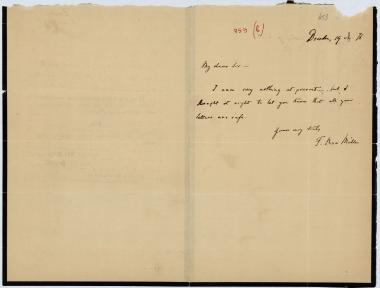 653
759 (6)
Dresden, 19
My dear Sir —
I can say nothing at present, but I
thought it right to let you know that all your
letters are safe.
Yours very truly,
F. Max Müller